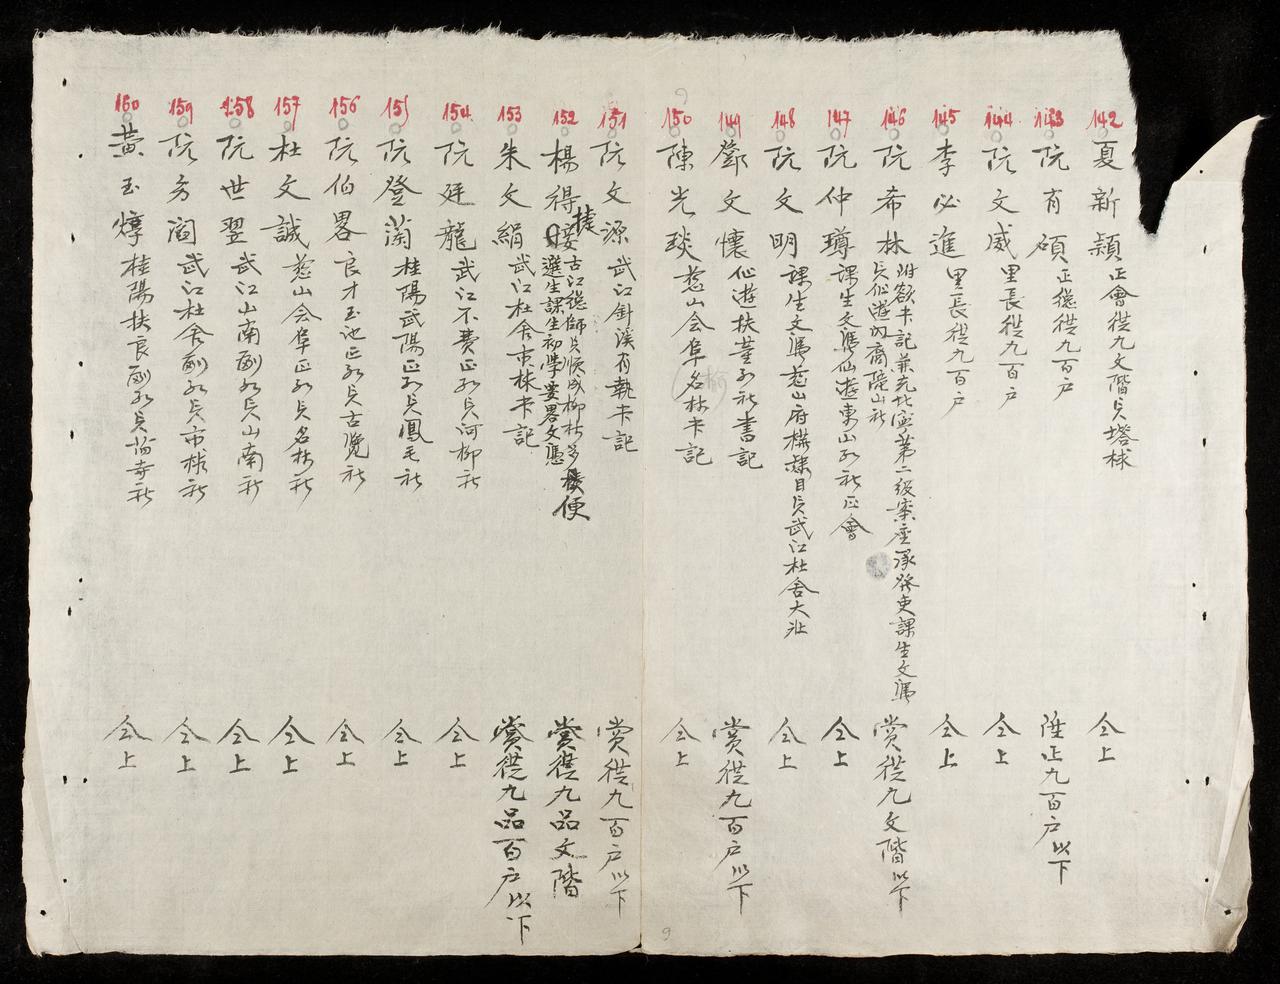 142 夏新穎 正會從九文階員塔梂 仝上
143 阮有碩 正總從九百户 陞正九百户以下
144 阮文威 里長從九百户 仝上
145 李必進 里長從九百户 仝上
146 阮希林 附欲卡記兼充北寧第二級案座承發吏課生文憑
員仙遊內裔隆山社 賞從九文階以下
147 阮仲璹 課生文憑仙遊東山社正會 仝上
148 阮文明 課生文憑慈山府構隸目員武江杜舍大壯 仝上
149 鄧文懷 仙遊扶董社書記 賞從九百户以下
150 陳光琰 慈山会阜名林卡記 仝上
151 阮文源 武江針溪有執卡記 賞從九百户以下
152 楊得捷 古江總師員順成柳林多便
選生課生初學要畧文憑 賞從九品文階
153 朱文絹 武江杜舍市梂卡記 賞從九品百户以下
154 阮廷龍 武江不費正社員河柳社 仝上
155 阮登蘭 桂陽武陽正社員鳳毛社 仝上
156 阮伯畧 良才玉池正社員古覽社 仝上
157 杜文誠 慈山会阜正社員名林社 仝上
158 阮世翌 武江山南副社員山南社 仝上
159 阮方閻 武江杜舍副社員市梂社 仝上
160 黃玉㷟 桂陽扶良副社員 社 仝上
9